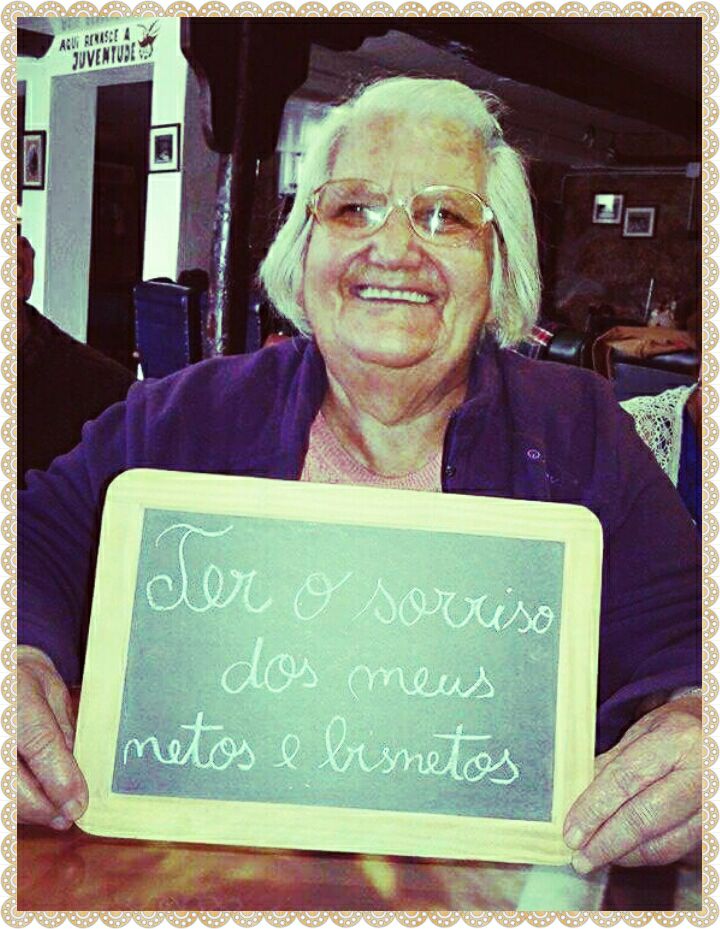 AQUI RENASCE A
JUVENTUDE
Ter o sorriso
dos meus
netos e bisnetos